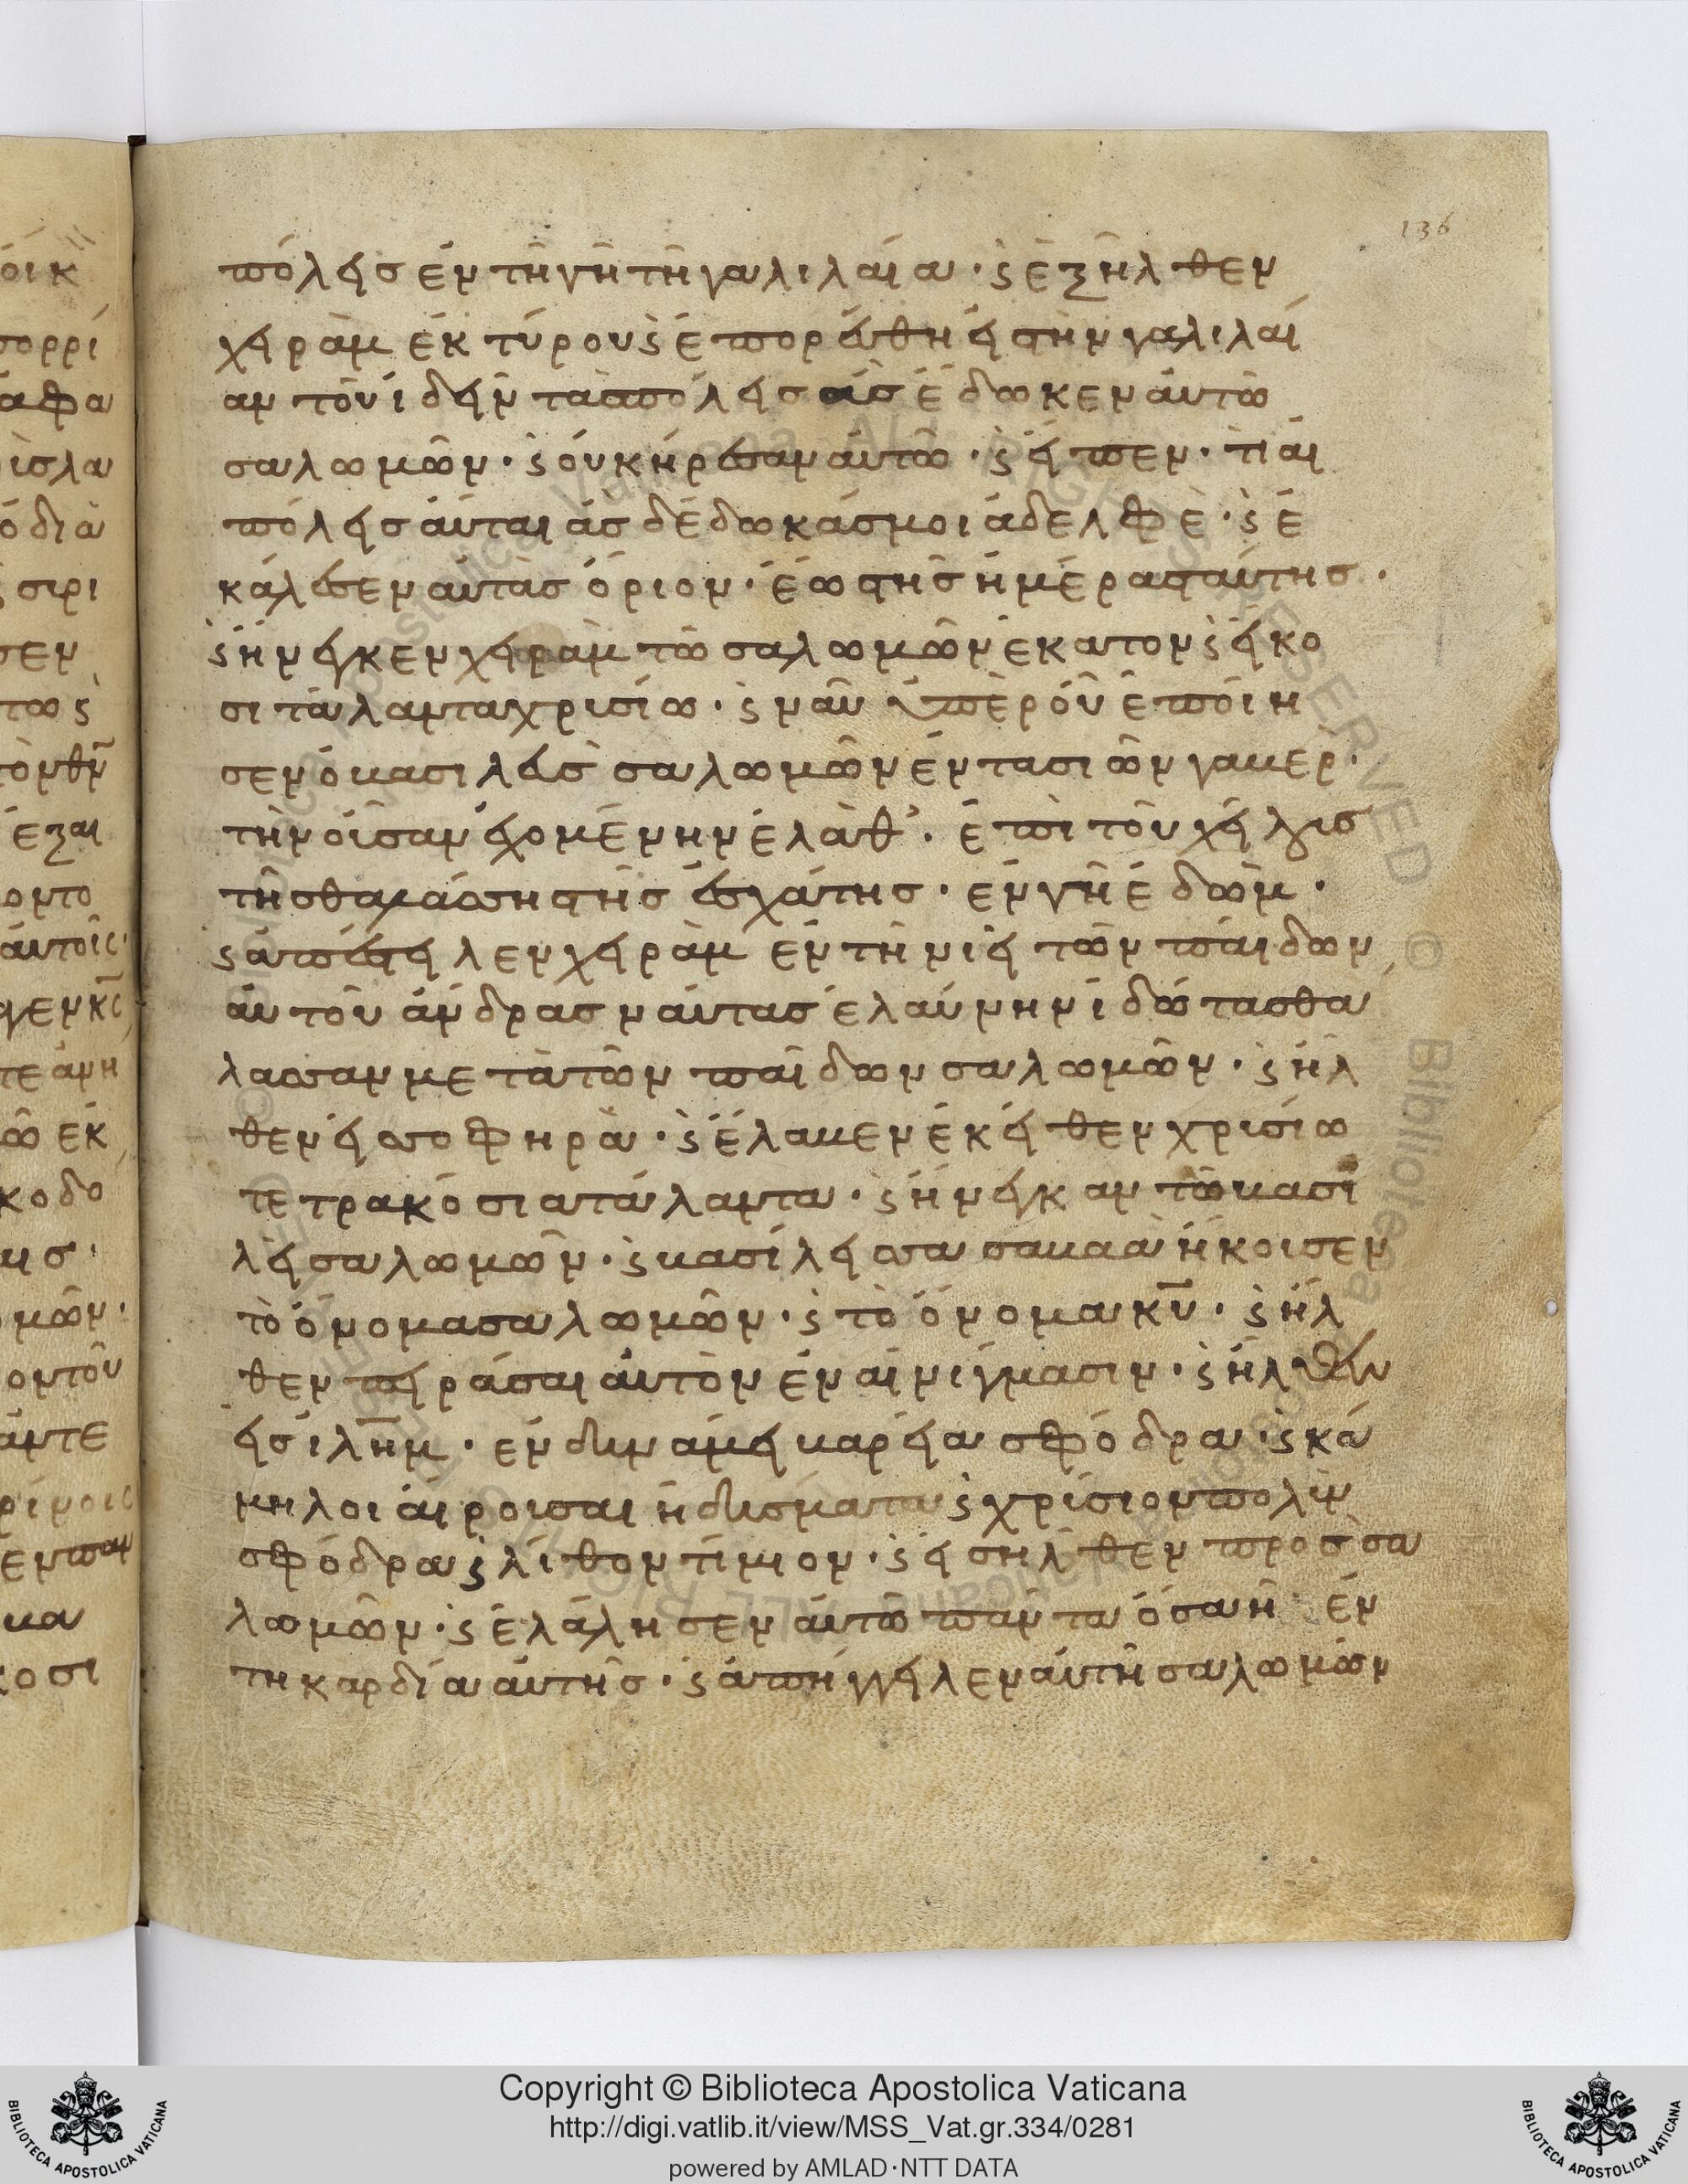 136
πόλεις ἐν τῆ γῆ τῆ γαλιλαία · ϛ ἐξῆλθεν
χειρὰμ ἐκ τύρου ϛ ἐπορεύθη εἰς τὴν γαλιλαί
αν τοῦ ἰδεῖν τὰς πόλεις ἃς ἔδωκεν αὐτῶ
σαλωμῶν · ϛ οὐκ ἤρεσαν αὐτῶ · ϛ εἶπεν · τί αἱ
πόλεις αὗται ἃς δέδωκάς μοι ἀδελφὲ · ϛ ἐ
κάλεσεν αὐτὰς ὅριον · ἕως τῆς ἡμέρας ταύτης ·
ϛ ἤνεγκεν χειρὰμ τῶ σαλωμῶν ἑκατον ϛ εἴκο
σι τάλαντα χρυσίω · ϛ ναῦν ὑπὲρ οὗ ἐποίη
σεν ὁ βασιλεὺς σαλωμῶν ἐν γασιῶν γαβερ ·
τὴν οὖσαν ἐχομένην ἐλὰθ · ἐπὶ τοῦ χείλους
τῆς θαλάσσης τῆς ἐσχάτης · ἐν γῆ ἐδώμ ·
ϛ ἀπέστειλεν χειρὰμ ἐν τῆ νηὶ τῶν παίδων
αὐτοῦ ἄνδρας ναύτας ἐλαύνην εἰδότας θα
λασσαν μετὰ τῶν παίδων σαλωμῶν · ϛ ἦλ
θεν εἰς σοφηρὰ · ϛ ἔλαβεν ἐκεῖθεν χρυσίω
τετρακόσια τάλαντα · ϛ ἤνεγκαν τῶ βασι
λεῖ σαλωμῶν · ϛ βασίλεισσα σαβαὰ ἤκουσεν
τὸ ὄνομα σαλωμῶν · ϛ τὸ ὄνομα κυ · ϛ ἦλ
θεν πειράσαι αὐτὸν ἐν αἰνίγμασιν · ϛ ἦλθεν
εἰς ιλημ · ἐν δυνάμει βαρεία σφόδρα · ϛ κά
μηλοι αἴρουσαι ἡδύσματα ϛ χρύσιον πολὺν
σφόδρα ϛ λίθον τίμιον · ϛ εἰσῆλθεν πρὸς σα
λωμῶν · ϛ ἐλάλησεν αὐτῶ πάντα ὅσα ἦν ἐν
τη καρδία αὐτῆς · ϛ ἀπήγγειλεν αὐτῆ σαλωμῶν
Copyright © Biblioteca Apostolica Vaticana
http://digi.vatlib.it/view/MSS_Vat.gr.334/0281
powered by AMLAD·NTT DATA